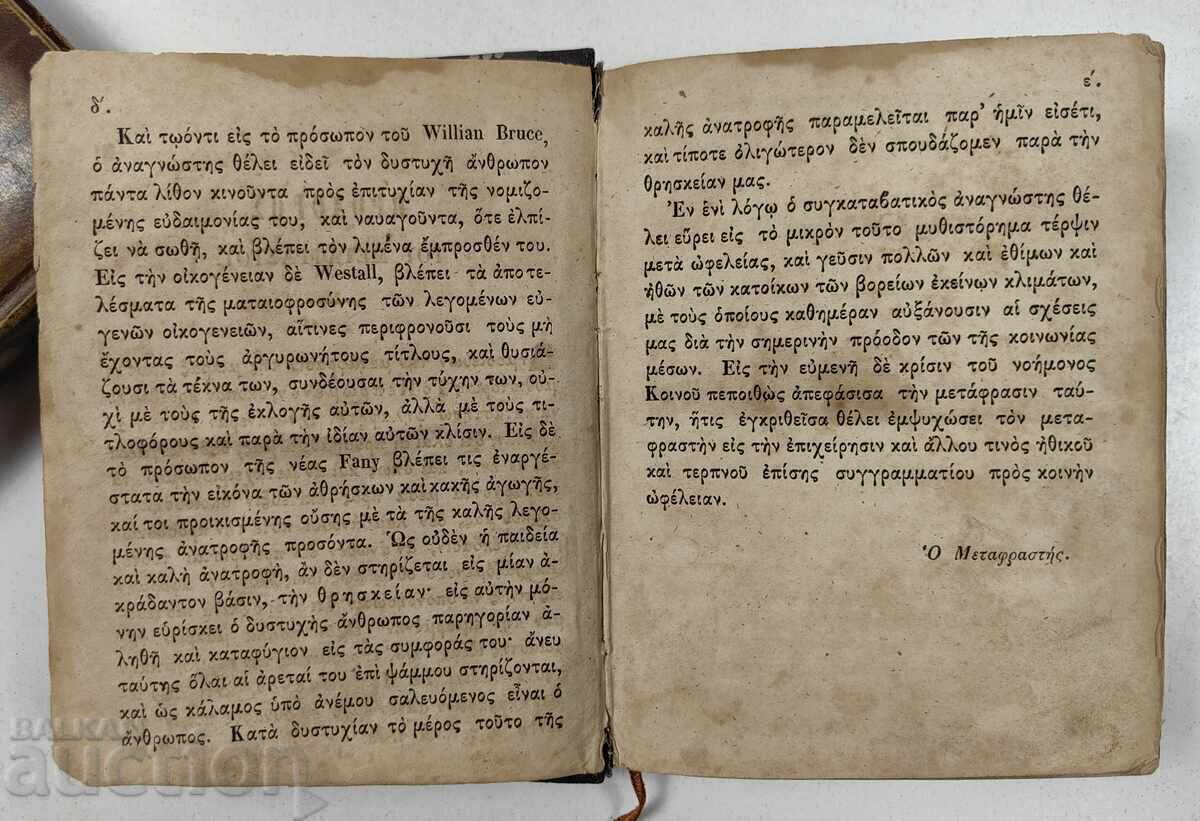 δ΄.
Καὶ τῳόντι εἰς τὸ πρόσωπον τοῦ Willian Bruce,
ὁ ἀναγνώστης θέλει εἰδεῖ τὸν δυστυχῆ ἄνθρωπον
πάντα λίθον κινοῦντα πρὸς ἐπιτυχίαν τῆς νομιζο-
μένης εὐδαιμονίας του, καὶ ναυαγοῦντα, ὅτε ἐλπί-
ζει νὰ σωθῆ, καὶ βλέπει τὸν λιμένα ἔμπροσθέν του.
Εἰς τὴν οἰκογένειαν δὲ Westall, βλέπει τὰ ἀποτε-
λέσματα τῆς ματαιοφροσύνης τῶν λεγομένων εὐ-
γενῶν οἰκογενειῶν, αἵτινες περιφρονοῦσι τοὺς μὴ
ἔχοντας τοὺς ἀργυρωνήτους τίτλους, καὶ θυσιά-
ζουσι τὰ τέκνα των, συνδέουσαι τὴν τύχην των, οὐ-
χὶ μὲ τοὺς τῆς ἐκλογῆς αὐτῶν, ἀλλὰ μὲ τοὺς τι-
τλοφόρους καὶ παρὰ τὴν ἰδίαν αὐτῶν κλίσιν. Εἰς δὲ
τὸ πρόσωπον τῆς νέας Fany βλέπει τις ἐναργέ-
στατα τὴν εἰκόνα τῶν ἀθρήσκων καὶ κακῆς ἀγωγῆς,
καί τοι προικισμένης οὔσης μὲ τὰ τῆς καλῆς λεγο-
μένης ἀνατροφῆς προσόντα. Ὡς οὐδὲν ἡ παιδεία
καὶ καλὴ ἀνατροφὴ, ἂν δὲν στηρίζεται εἰς μίαν ἀ-
κράδαντον βάσιν, τὴν θρησκείαν· εἰς αὐτὴν μό-
νην εὑρίσκει ὁ δυστυχὴς ἄνθρωπος παρηγορίαν ἀ-
ληθῆ καὶ καταφύγιον εἰς τὰς συμφοράς του· ἄνευ
ταύτης ὅλαι αἱ ἀρεταί του ἐπὶ ψάμμου στηρίζονται,
καὶ ὡς κάλαμος ὑπὸ ἀνέμου σαλευόμενος εἶναι ὁ
ἄνθρωπος. Κατὰ δυστυχίαν τὸ μέρος τοῦτο τῆς
ε΄.
καλῆς ἀνατροφῆς παραμελεῖται παρ' ἡμῖν εἰσέτι,
καὶ τίποτε ὀλιγώτερον δὲν σπουδάζομεν παρὰ τὴν
θρησκείαν μας.
Ἐν ἑνὶ λόγῳ ὁ συγκαταβατικὸς ἀναγνώστης θέ-
λει εὕρει εἰς τὸ μικρὸν τοῦτο μυθιστόρημα τέρψιν
μετὰ ὠφελείας, καὶ γεῦσιν πολλῶν καὶ ἐθίμων καὶ
ἠθῶν τῶν κατοίκων τῶν βορείων ἐκείνων κλιμάτων,
μὲ τοὺς ὁποίους καθημέραν αὐξάνουσιν αἱ σχέσεις
μας διὰ τὴν σημερινὴν πρόοδον τῶν τῆς κοινωνίας
μέσων. Εἰς τὴν εὐμενῆ δὲ κρίσιν τοῦ νοήμονος
Κοινοῦ πεποιθὼς ἀπεφάσισα τὴν μετάφρασιν ταύ-
την, ἥτις ἐγκριθεῖσα θέλει ἐμψυχώσει τὸν μετα-
φραστὴν εἰς τὴν ἐπιχείρησιν καὶ ἄλλου τινὸς ἠθικοῦ
καὶ τερπνοῦ ἐπίσης συγγραμματίου πρὸς κοινὴν
ὠφέλειαν.
Ὁ Μεταφραστής.
BALKAN
auction